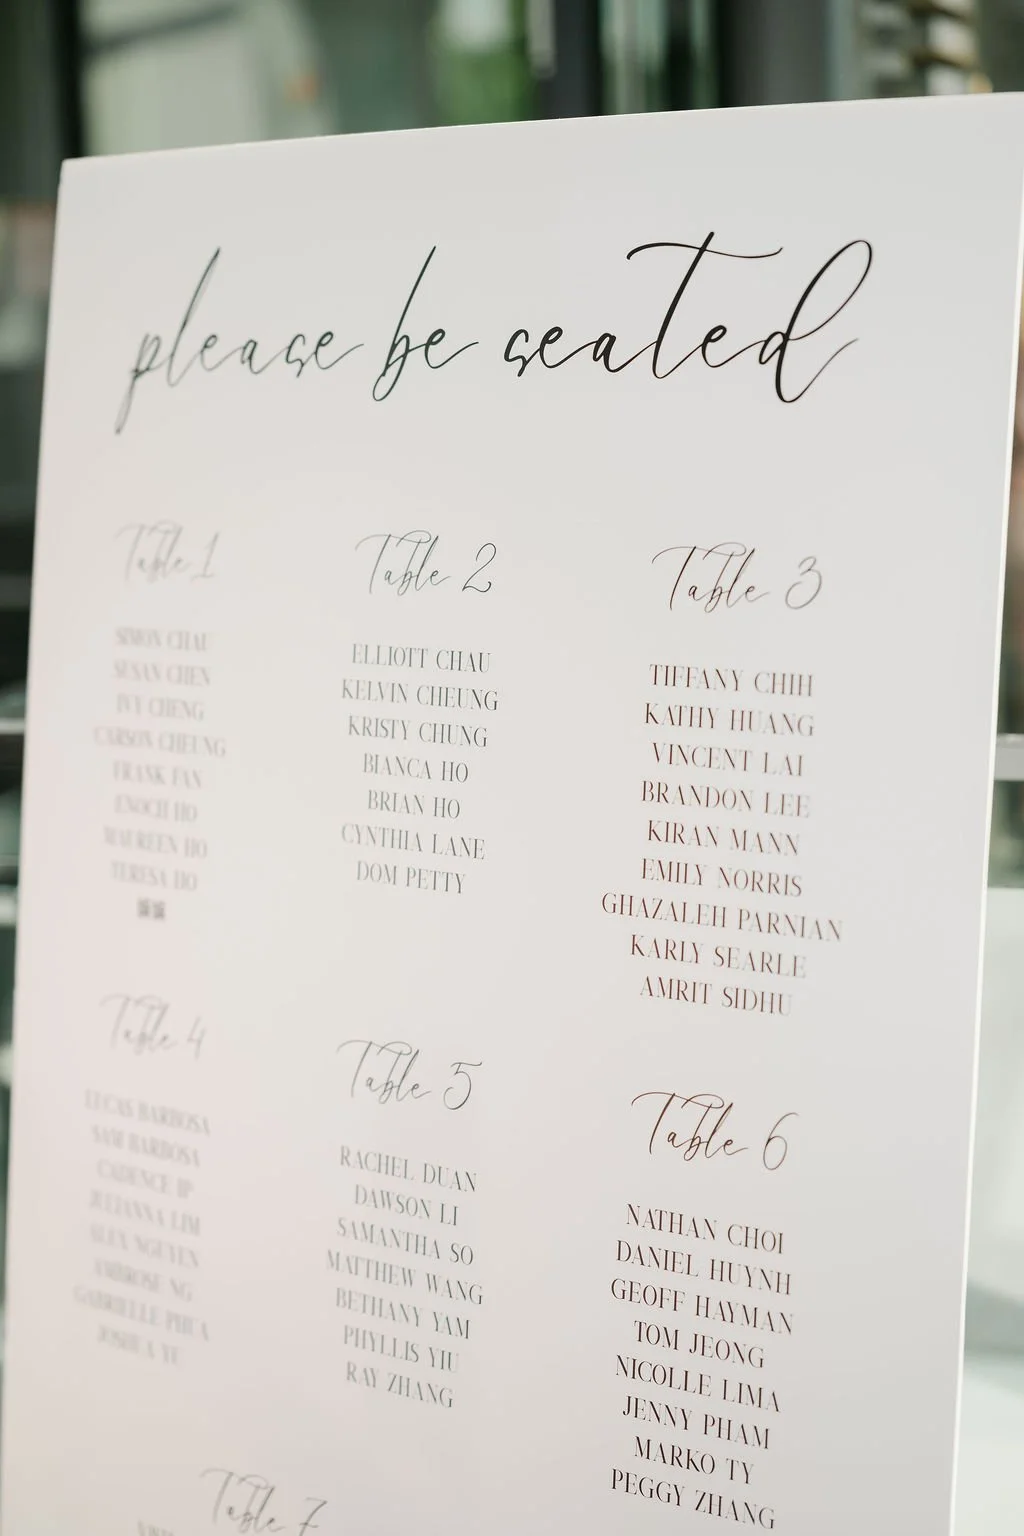 please be seated
Table 1
SIMON CHAU
SUSAN CHEN
IVY CHENG
CARSON CHEUNG
FRANK FAN
ENOCH HO
MAUREEN HO
TERESA HO
Table 2
ELLIOTT CHAU
KELVIN CHEUNG
KRISTY CHUNG
BIANCA HO
BRIAN HO
CYNTHIA LANE
DOM PETTY
Table 3
TIFFANY CHIH
KATHY HUANG
VINCENT LAI
BRANDON LEE
KIRAN MANN
EMILY NORRIS
GHAZALEH PARNIAN
KARLY SEARLE
AMRIT SIDHU
Table 4
LUCAS BARBOSA
SAM BARBOSA
CADENCE IP
JULIANNA LIM
ALEX NGUYEN
AMBROSE NG
GABRIELLE PHUA
JOSHUA YU
Table 5
RACHEL DUAN
DAWSON LI
SAMANTHA SO
MATTHEW WANG
BETHANY YAM
PHYLLIS YIU
RAY ZHANG
Table 6
NATHAN CHOI
DANIEL HUYNH
GEOFF HAYMAN
TOM JEONG
NICOLLE LIMA
JENNY PHAM
MARKO TY
PEGGY ZHANG
Table 7